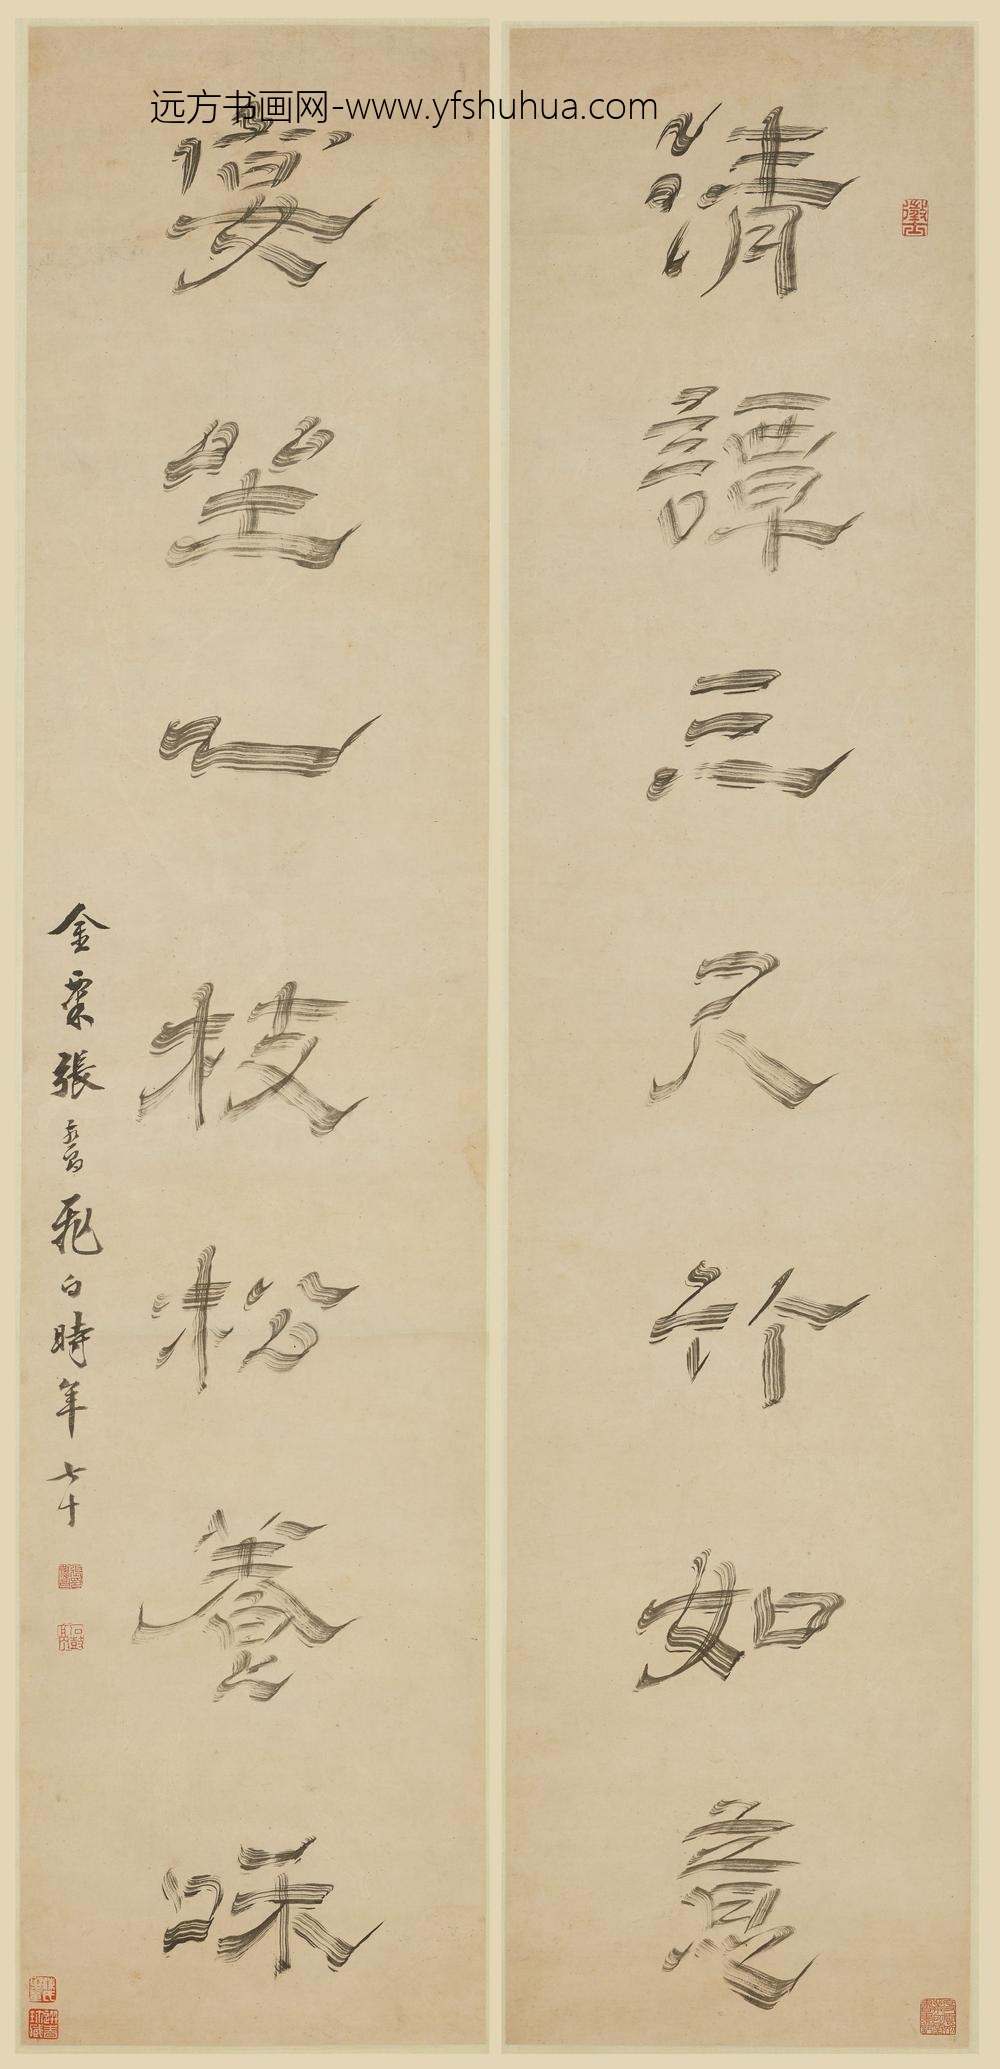 远方书画网-www.yfshuhua.com
清譚三尺竹如意
宴坐一枝松養咊
金粟張燕昌飛白時年七十